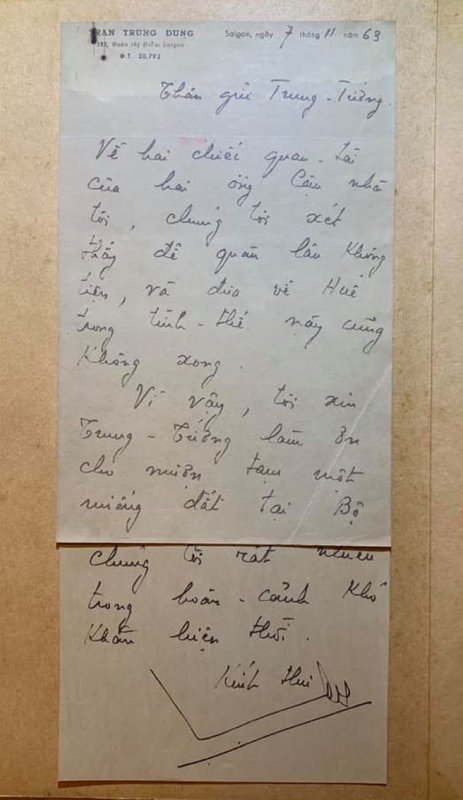 TRAN TRUNG DUNG
Saigon, ngày 7 tháng 11 năm 63
Đoàn Thị Điểm Saigon
Đ.T. 20,792
Thân gửi Trung-Tướng.
Về hai chiếc quan-tài
của hai ông Cậu nhà
tôi, chúng tôi xét
thấy để quàn lâu không
tiện, và đưa về Huế
trong tình-thế này cũng
không xong.
Vì vậy, tôi xin
Trung-Tướng làm ơn
cho mượn tạm một
miếng đất tại Bộ
chúng tôi rất nhiều
trong hoàn-cảnh khó
khăn hiện thời.
Kính thư